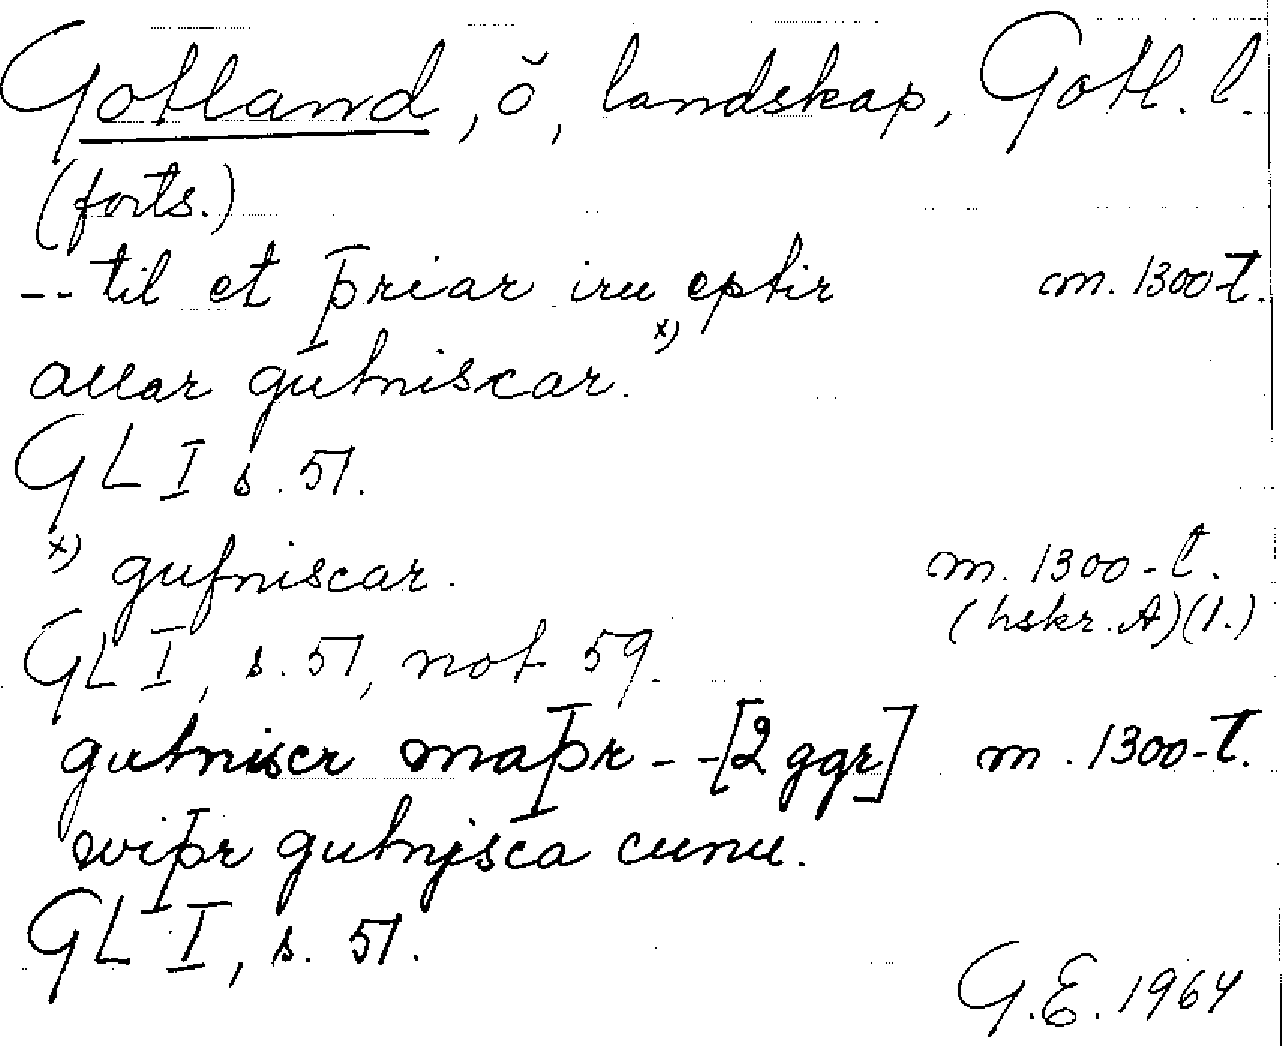 Gotland, ö, landskap, Gotl. l.
(forts.)
-- til et þriar iru eptir m. 1300-t.
allar gutniscar. x)
GL I s. 51.
x) gufniscar. m. 1300-t.
(hskr. A)(1.)
GL I, s. 51, not 59.
gutniscr maþr -- [2 ggr] m. 1300-t.
wiþr gutnisca cunu.
GL I, s. 51.
G.E. 1964